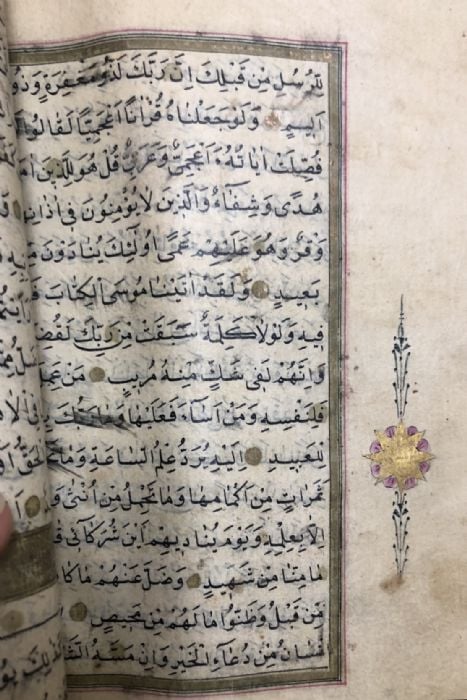 لِلرُّسُلِ مِنْ قَبْلِكَ اِنَّ رَبَّكَ لَذُو مَغْفِرَةٍ وَذُو
اَلِيمٍ وَلَوْ جَعَلْنَاهُ قُرْاٰنًا اَعْجَمِيًّا لَقَالُوا
فُصِّلَتْ اٰيَاتُهُ ءَاَعْجَمِيٌّ وَعَرَبِيٌّ قُلْ هُوَ لِلَّذِينَ
هُدًى وَشِفَاءٌ وَالَّذِينَ لَا يُؤْمِنُونَ فِى اٰذَانِهِمْ
وَقْرٌ وَهُوَ عَلَيْهِمْ عَمًى اُولٰئِكَ يُنَادَوْنَ مِنْ
بَعِيدٍ وَلَقَدْ اٰتَيْنَا مُوسَى الْكِتَابَ
فِيهِ وَلَوْلَا كَلِمَةٌ سَبَقَتْ مِنْ رَبِّكَ
وَاِنَّهُمْ لَفِى شَكٍّ مِنْهُ مُرِيبٍ مَنْ
فَلِنَفْسِهِ وَمَنْ اَسَاءَ فَعَلَيْهَا وَمَا رَبُّكَ
لِلْعَبِيدِ اِلَيْهِ يُرَدُّ عِلْمُ السَّاعَةِ وَمَا
ثَمَرَاتٍ مِنْ اَكْمَامِهَا وَمَا تَحْمِلُ مِنْ اُنْثٰى
اِلَّا بِعِلْمِهِ وَيَوْمَ يُنَادِيهِمْ اَيْنَ شُرَكَائِى
مَا مِنَّا مِنْ شَهِيدٍ وَضَلَّ عَنْهُمْ مَا
مِنْ قَبْلُ وَظَنُّوا مَا لَهُمْ مِنْ مَحِيصٍ
مِنْ دُعَاءِ الْخَيْرِ وَاِنْ مَسَّهُ